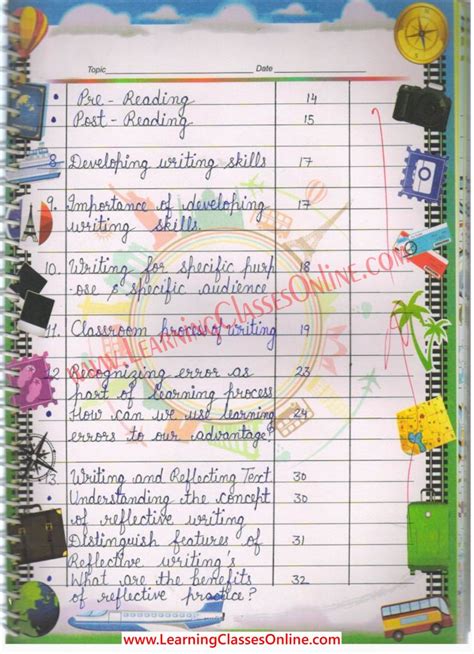 LearningClassesOnline.com
Topic Date
• Pre - Reading 14
• Post - Reading 15
8. Developing writing skills 17
9. Importance of developing 17
writing skills.
10. Writing for specific purp 18
ose & specific audience
11. Classroom process of writing 19
12. Recognizing error as 23
part of learning process
• How can we use learning 24
errors to our advantage?
13. Writing and Reflecting Text 30
• Understanding the concept 30
of reflective writing
• Distinguish features of 31
Reflective writing's
• What are the benefits 32
of reflective practice?
www.LearningClassesOnline.com
www.LearningClassesOnline.com